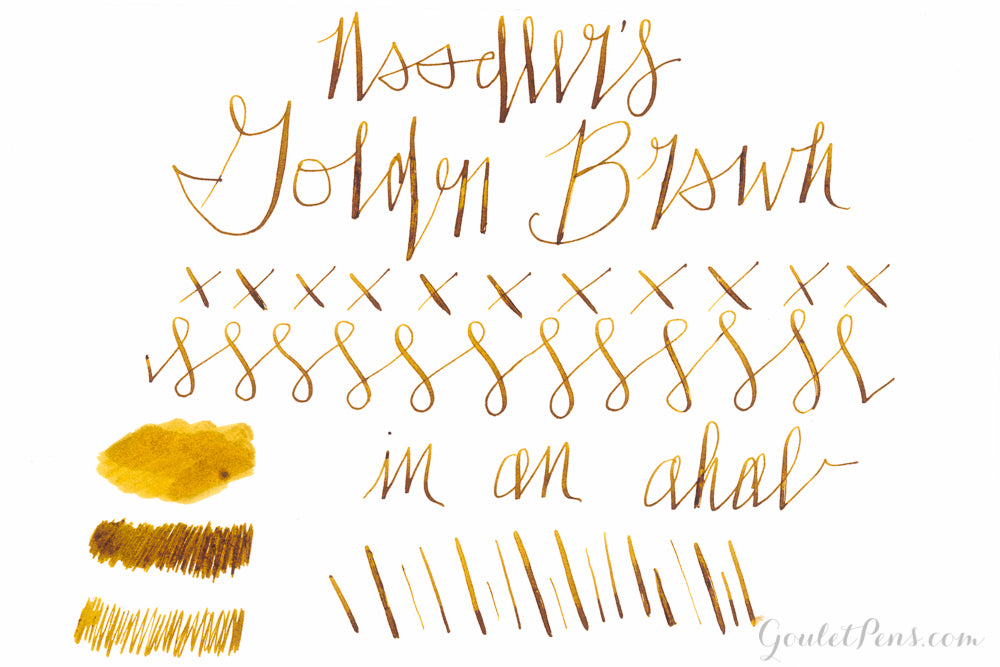 Noodler's
Golden Brown
x x x x x x x x x x x
in an ahab
GouletPens.com